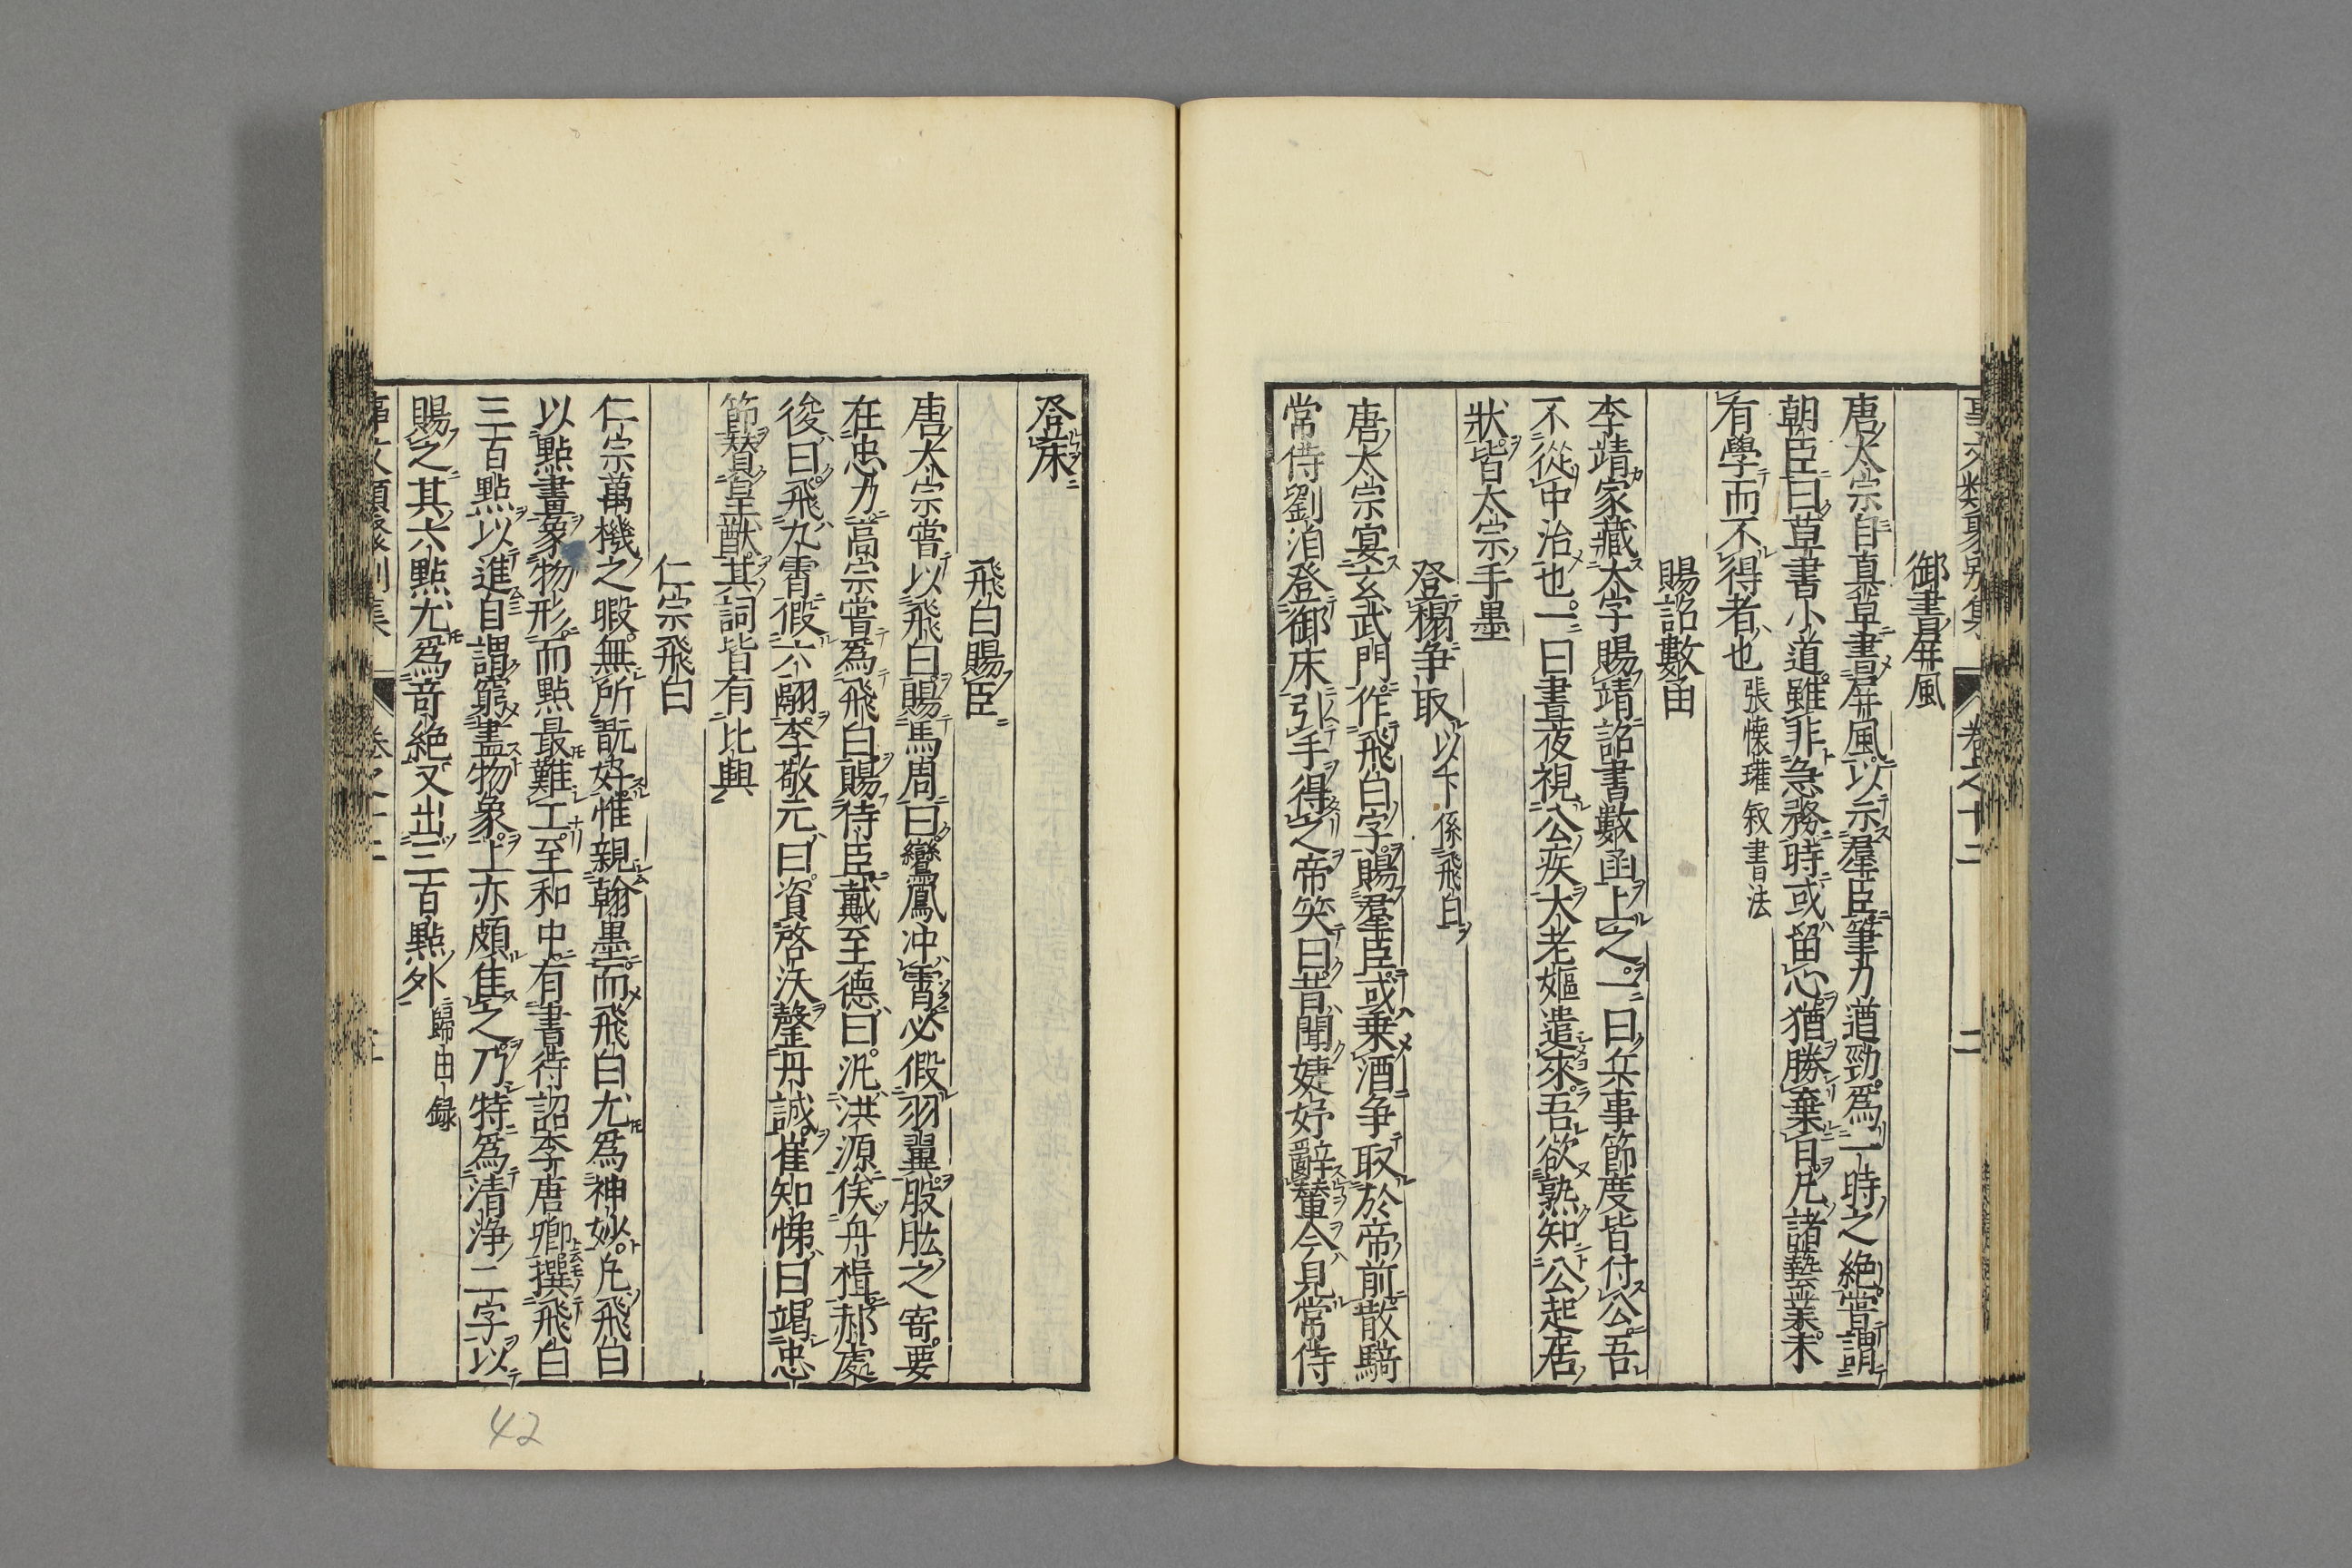 事文類聚別集 卷之十二 二
御書屏風
唐太宗自真草書屏風以示羣臣筆力遒勁爲一時之絶嘗謂
朝臣曰草書小道雖非急務時或留心猶勝棄日凡諸藝業未
有學而不得者也 張懷瓘叙書法
賜詔數函
李靖家藏太宗賜靖詔書數函上之一曰兵事節度皆付公吾
不從中治也一曰晝夜視公疾大老嫗遣來吾欲熟知公起居
狀皆太宗手墨
登榻爭取 以下係飛白
唐太宗宴玄武門作飛白字賜羣臣或乗酒爭取於帝前散騎
常侍劉洎登御床引手得之帝笑曰昔聞婕妤辭輦今見常侍
登床
飛白賜臣
唐太宗嘗以飛白賜馬周曰鸞鳳冲霄必假羽翼股肱之寄要
在忠力高宗嘗爲飛白賜侍臣戴至德曰汎洪源俟舟楫郝處
俊曰飛九霄假六翮李敬元曰資啓沃罄丹誠崔知悌曰竭忠
節賛皇猷其詞皆有比興
仁宗飛白
仁宗萬機之暇無所翫好惟親翰墨而飛白尤爲神妙凡飛白
以點畫象物形而點最難工至和中有書待詔李唐卿撰飛白
三百點以進自謂窮盡物象上亦頗佳之乃特爲清淨二字以
賜之其六點尤爲奇絶又出三百點外 歸田録
事文類聚別集 卷之十二
42